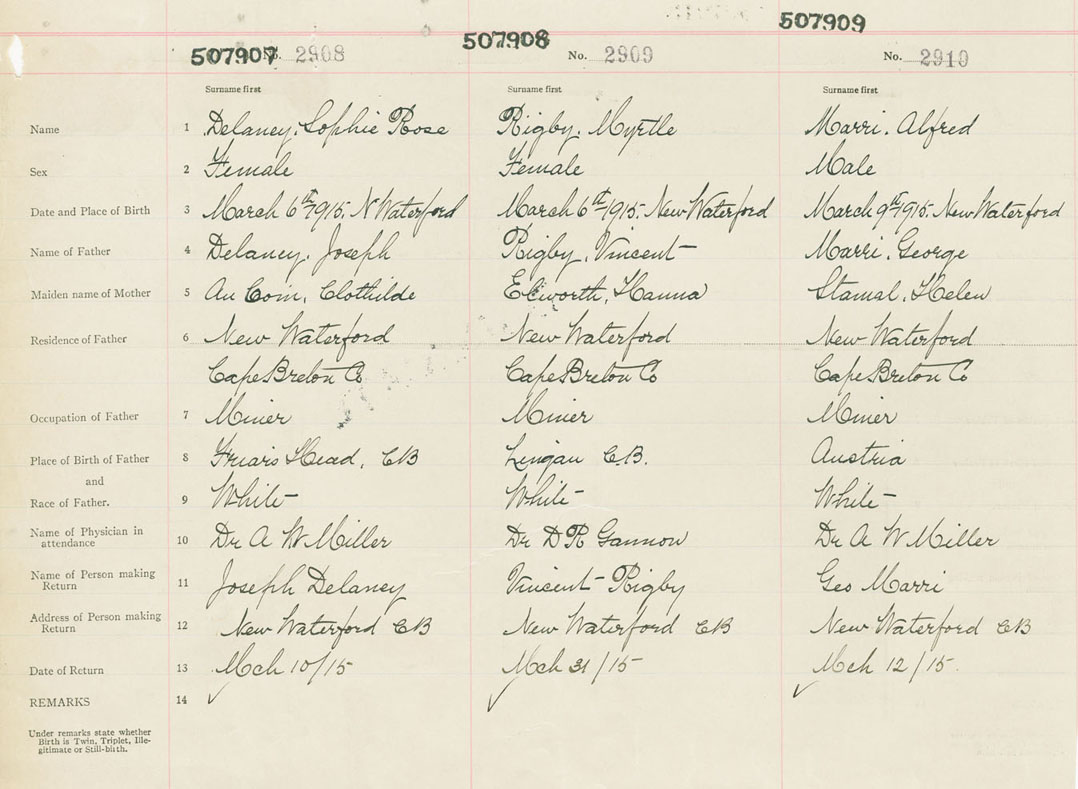 507907 No. 2908 507908 No. 2909 507909 No. 2910
Surname first Surname first Surname first
Name 1 Delaney, Sophie Rose Rigby, Myrtle Marri, Alfred
Sex 2 Female Female Male
Date and Place of Birth 3 March 6th 1915. N Waterford March 6th 1915. New Waterford March 9th 1915. New Waterford
Name of Father 4 Delaney, Joseph Rigby, Vincent Marri, George
Maiden name of Mother 5 Au Coin, Clothilde Hanna Stamal, Helen
Residence of Father 6 New Waterford New Waterford New Waterford
Cape Breton Co Cape Breton Co Cape Breton Co
Occupation of Father 7 Miner Miner Miner
Place of Birth of Father 8 Friars Head, CB Lingan C.B. Austria
and
Race of Father. 9 White White White
Name of Physician in
attendance 10 Dr A W Miller Dr D R Gannon Dr A W Miller
Name of Person making
Return 11 Joseph Delaney Vincent Rigby Geo Marri
Address of Person making
Return 12 New Waterford CB New Waterford CB New Waterford CB
Date of Return 13 Mch 10/15 Mch 31/15 Mch 12/15.
REMARKS 14
Under remarks state whether
Birth is Twin, Triplet, Ille-
gitimate or Still-birth.